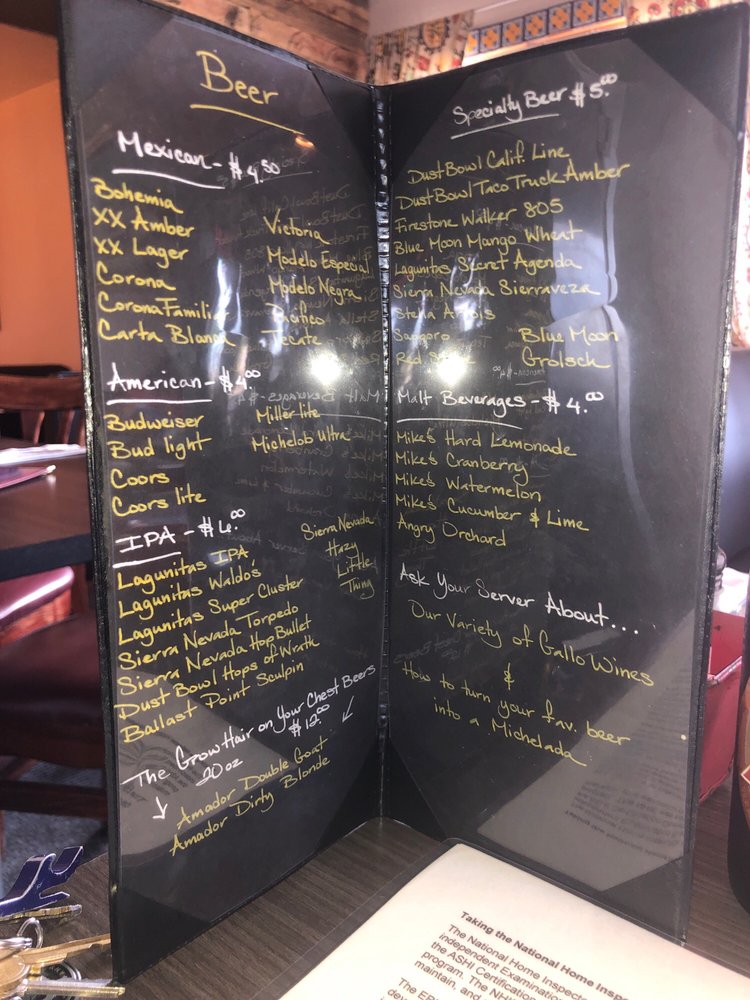 Beer
Mexican - $4.50
Bohemia
XX Amber
XX Lager
Corona
Corona Familiar
Carta Blanca
Victoria
Modelo Especial
Modelo Negra
Pacifico
Tecate
American - $4.00
Budweiser
Bud light
Coors
Coors lite
Miller lite
Michelob Ultra
IPA - $6.00
Lagunitas IPA
Lagunitas Waldo's
Lagunitas Super Cluster
Sierra Nevada Torpedo
Sierra Nevada Hop Bullet
Dust Bowl Hops of Wrath
Ballast Point Sculpin
Sierra Nevada
Hazy
Little
Thing
The Grow Hair on Your Chest Beers
20 oz $12.00
Amador Double Goat
Amador Dirty Blonde
Specialty Beer $5.00
Dust Bowl Calif. Line
Dust Bowl Taco Truck Amber
Firestone Walker 805
Blue Moon Mango Wheat
Lagunitas Secret Agenda
Sierra Nevada Sierraveza
Stella Artois
Sapporo
Red
Blue Moon
Grolsch
Malt Beverages - $4.00
Mike's Hard Lemonade
Mike's Cranberry
Mike's Watermelon
Mike's Cucumber & Lime
Angry Orchard
Ask Your Server About...
Our Variety of Gallo Wines
&
How to turn your fav. beer
into a Michelada
Taking the National Home
The National Home
independent Examination
the ASHI Certification
program. The
maintain, and
The